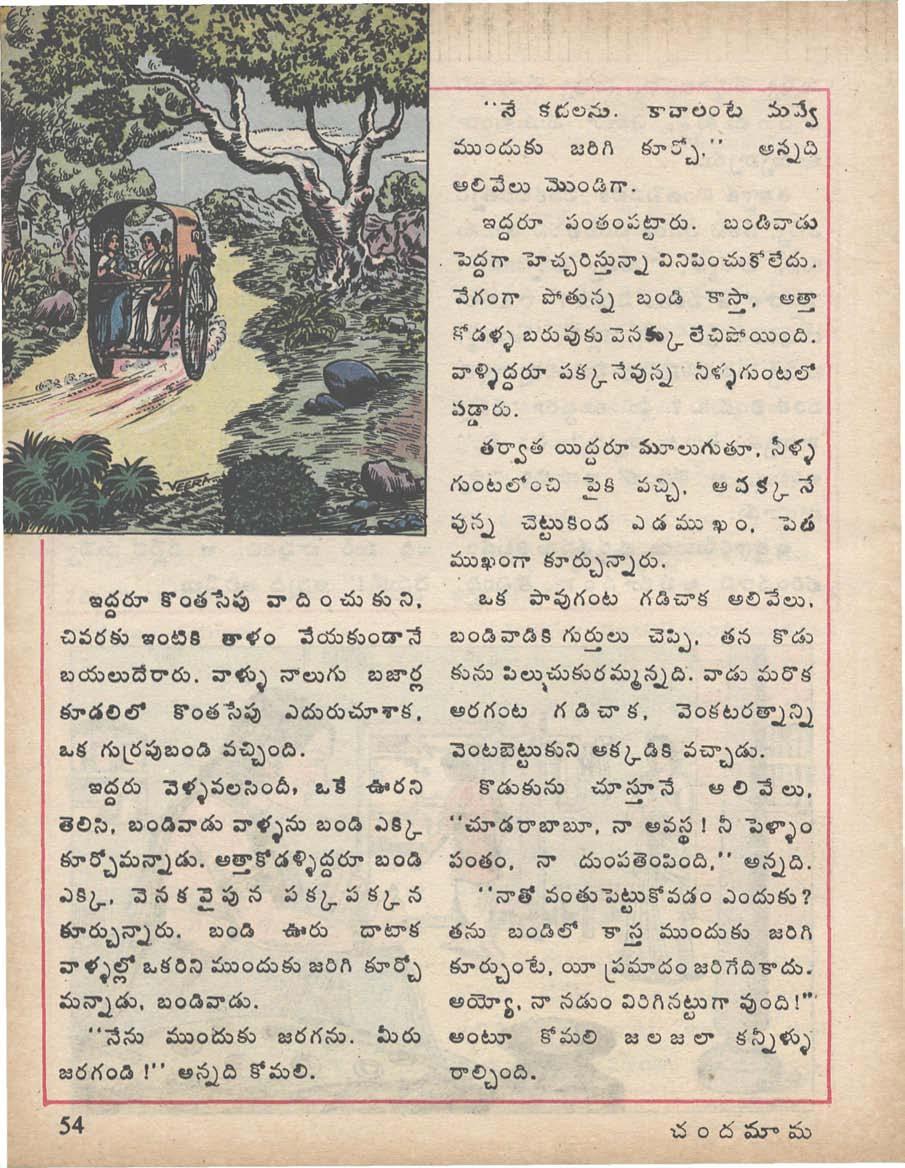 VEERA
ఇద్దరూ కొంతసేపు వాదించుకుని,
చివరకు ఇంటికి తాళం వేయకుండానే
బయలుదేరారు. వాళ్ళు నాలుగు బజార్ల
కూడలిలో కొంతసేపు ఎదురుచూశాక,
ఒక గుర్రపుబండి వచ్చింది.
ఇద్దరు వెళ్ళవలసిందీ, ఒకే ఊరని
తెలిసి, బండివాడు వాళ్ళను బండి ఎక్కి
కూర్చోమన్నాడు. అత్తాకోడళ్ళిద్దరూ బండి
ఎక్కి, వెనకవైపున పక్కపక్కన
కూర్చున్నారు. బండి ఊరు దాటాక
వాళ్ళల్లో ఒకరిని ముందుకు జరిగి కూర్చో
మన్నాడు, బండివాడు.
"నేను ముందుకు జరగను. మీరు
జరగండి !" అన్నది కోమలి.
"నే కదలను. కావాలంటే నువ్వే
ముందుకు జరిగి కూర్చో," అన్నది
అలివేలు మొండిగా.
ఇద్దరూ పంతంపట్టారు. బండివాడు
పెద్దగా హెచ్చరిస్తున్నా వినిపించుకోలేదు.
వేగంగా పోతున్న బండి కాస్తా, అత్తా
కోడళ్ళ బరువుకు వెనక్కు లేచిపోయింది.
వాళ్ళిద్దరూ పక్కనేవున్న నీళ్ళగుంటలో
పడ్డారు.
తర్వాత యిద్దరూ మూలుగుతూ, నీళ్ళ
గుంటలోంచి పైకి వచ్చి, ఆ పక్కనే
వున్న చెట్టుకింద ఎడముఖం, పెడ
ముఖంగా కూర్చున్నారు.
ఒక పావుగంట గడిచాక అలివేలు,
బండివాడికి గుర్తులు చెప్పి, తన కొడు
కును పిల్చుచుకురమ్మన్నది. వాడు మరొక
అరగంట గడిచాక, వెంకటరత్నాన్ని
వెంటబెట్టుకుని అక్కడికి వచ్చాడు.
కొడుకును చూస్తూనే అలివేలు,
"చూడరాబాబూ, నా అవస్థ ! నీ పెళ్ళాం
పంతం, నా దుంపతెంపింది," అన్నది.
"నాతో వంతుపెట్టుకోవడం ఎందుకు?
తను బండిలో కాస్త ముందుకు జరిగి
కూర్చుంటే, యీ ప్రమాదం జరిగేదికాదు.
అయ్యో, నా నడుం విరిగినట్టుగా వుంది!"
అంటూ కోమలి జలజలా కన్నీళ్ళు
రాల్చింది.
54
చందమామ